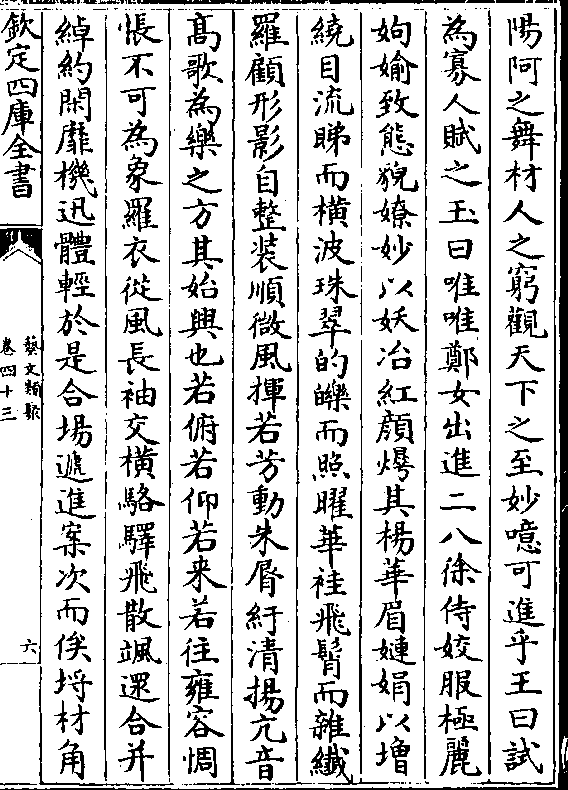 陽阿之舞材人之窮觀天下之至妙噫可進乎王曰試
為寡人賦之玉曰唯唯鄭女出進二八徐侍姣服極麗
姁媮致態貌嫽妙以妖冶紅顔爗其楊華眉嫓娟以增
繞目流睇而橫波珠翠的皪而照曜華袿飛髾而雜纎
羅顧形影自整装順微風揮若芳動朱唇紆清揚亢音
髙歌為樂之方其始興也若俯若仰若来若往雍容惆
悵不可為象羅衣從風長袖交橫駱驛飛散颯還合并
綽約閑靡機迅體輕於是合場遞進案次而俟埒材角
欽定四庫全書
藝文類聚
卷四十三
六